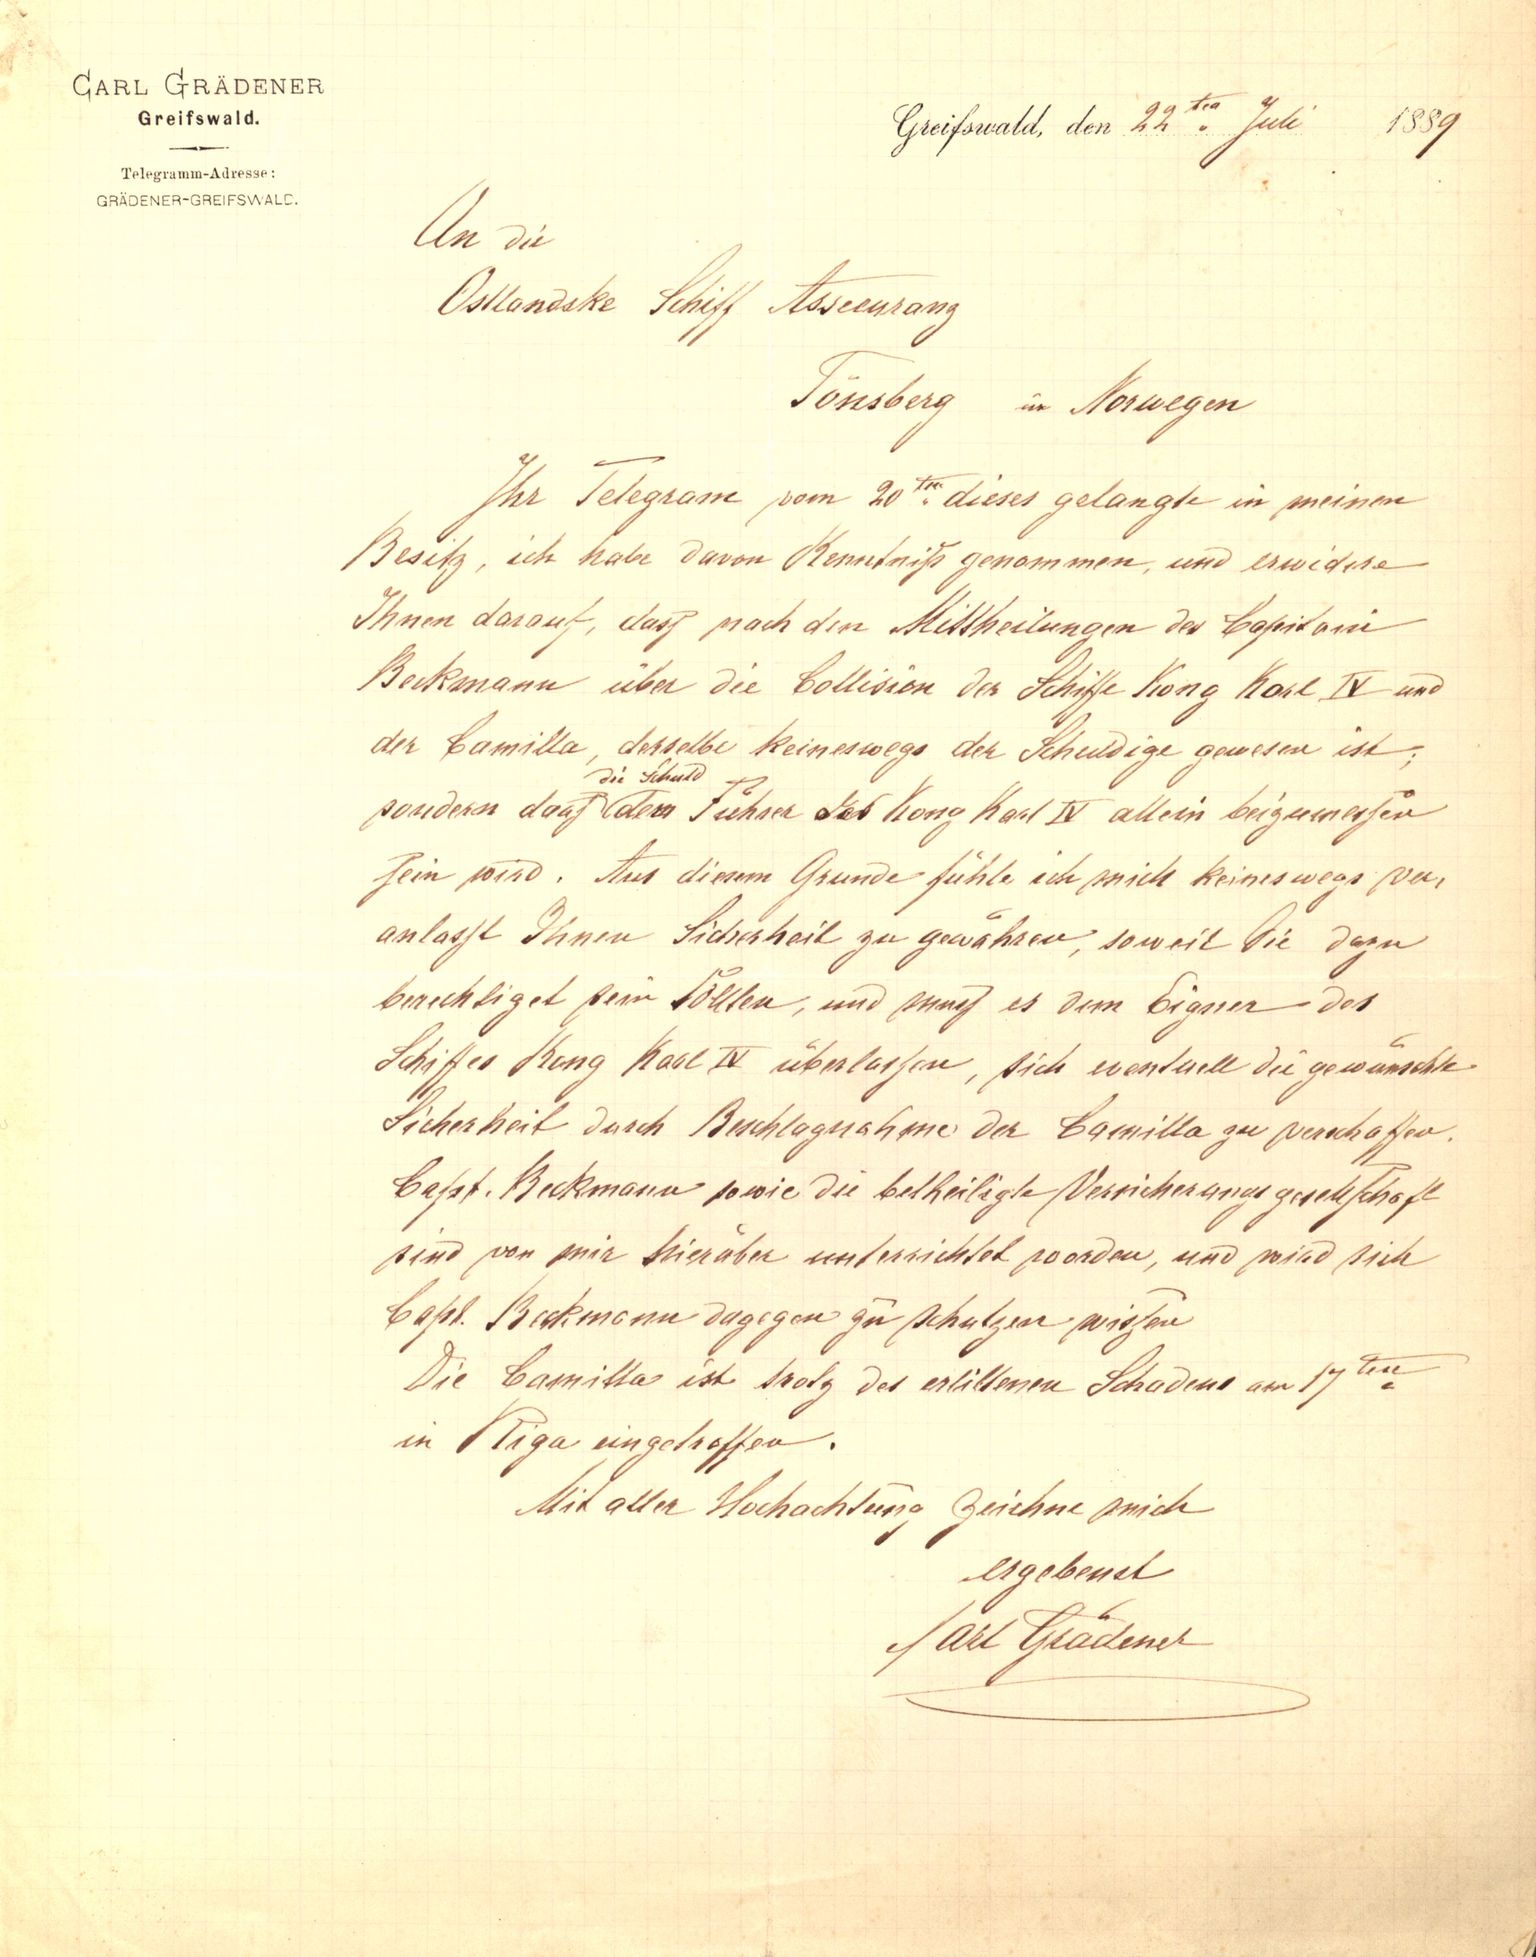 CARL GRÄDENER
Greifswald.
Telegramm-Adresse:
GRÄDENER-GREIFSWALD.
Greifswald, den 22ten Juli 1889
An die
Ostlandske Schiff Assecuranz
Tönsberg in Norwegen
Ihr Telegram vom 20ten dieses gelangte in meinen
Besitz, ich habe davon Kenntniß genommen, und erwidere
Ihnen darauf, dass nach den Mittheilungen des Capitain
Beckmann über die Collision der Schiffe Kong Karl IV und
der Camilla, derselbe keineswegs der Schuldige gewesen ist,
die Schuld
sondern dass dem Führer des Kong Karl IV allein beizumessen
sein wird. Aus diesem Grunde fühle ich mich keineswegs ver,
anlasst Ihnen Sicherheit zu gewähren, soweit Sie dazu
berechtiget sein sollten, und muss es dem Eigner des
Schiffes Kong Karl IV überlassen, sich eventuell die gewünschte
Sicherheit durch Beschlagnahme der Camilla zu verschaffen.
Capt. Beckmann sowie die betheiligte Versicherungsgesellschaft
sind von mir hierüber unterrichtet worden, und wird sich
Capt. Beckmann dagegen zu schutzen wissen
Die Camilla ist trotz des erlittenen Schadens am 17ten
in Riga eingetroffen.
Mit aller Hochachtung zeichne mich
ergebenst
Carl Grädener